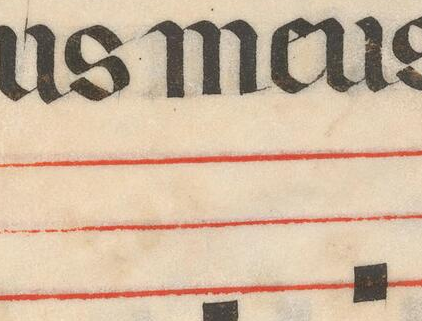 us meus